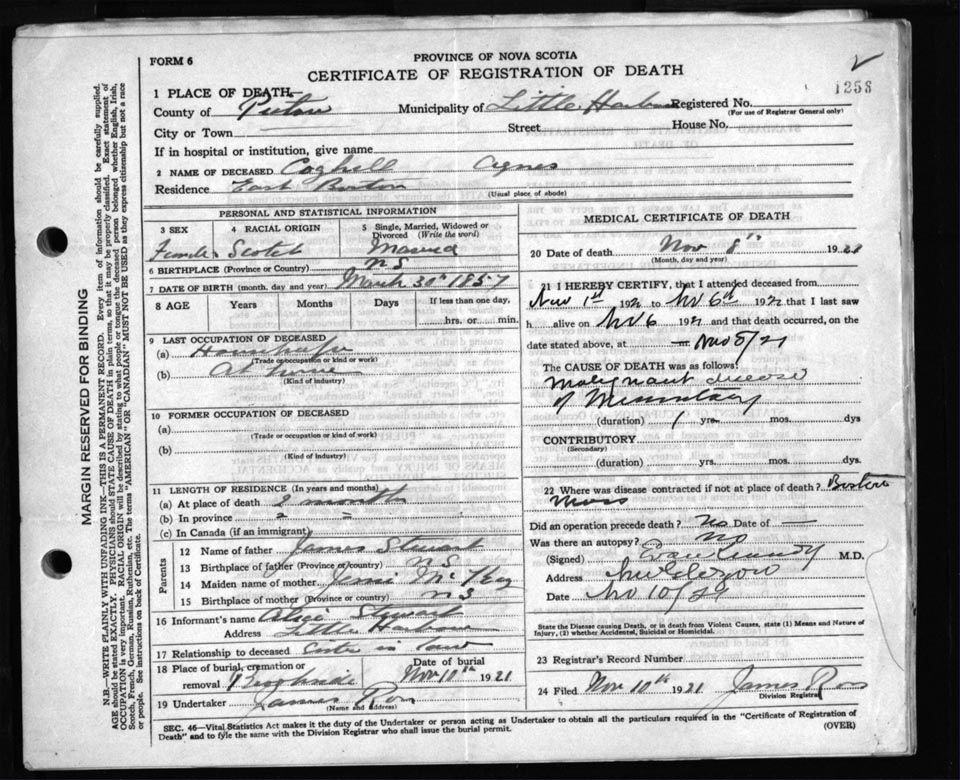 FORM 6
PROVINCE OF NOVA SCOTIA
CERTIFICATE OF REGISTRATION OF DEATH
1258
1 PLACE OF DEATH—
County of Pictou Municipality of Little Harbour Registered No.
(For use of Registrar General only)
City or Town Street House No.
If in hospital or institution, give name
2 NAME OF DECEASED Coghill Agnes
Residence East Boston (Usual place of abode)
PERSONAL AND STATISTICAL INFORMATION
3 SEX 4 RACIAL ORIGIN 5 Single, Married, Widowed or Divorced (Write the word)
Female Scotch Married
6 BIRTHPLACE (Province or Country) N S
7 DATE OF BIRTH (month, day and year) March 30th 1857
8 AGE Years Months Days If less than one day, hrs. or min.
9 LAST OCCUPATION OF DECEASED
(a) Housewife
(Trade or occupation or kind of work)
(b) At home
(Kind of industry)
10 FORMER OCCUPATION OF DECEASED
(a)
(Trade or occupation or kind of work)
(b)
(Kind of industry)
11 LENGTH OF RESIDENCE (In years and months)
(a) At place of death 2 months
(b) In province 2 =
(c) In Canada (if an immigrant)
Parents
12 Name of father James Stewart
13 Birthplace of father (Province or country) N S
14 Maiden name of mother Mc
15 Birthplace of mother (Province or country) N S
16 Informant's name Stewart
Address Little Harbour
17 Relationship to deceased Sister in law
18 Place of burial, cremation or removal Date of burial Nov 10th 1921
19 Undertaker James Ross
(Name and address)
MEDICAL CERTIFICATE OF DEATH
20 Date of death Nov 8th 1921
(Month, day and year)
21 I HEREBY CERTIFY, that I attended deceased from
Nov 1st 192 to Nov 6th 192 that I last saw
h alive on Nov 6 192 and that death occurred, on the
date stated above, at — Nov 8/21
The CAUSE OF DEATH was as follows:
Malignant disease
of
(duration) 1 yrs. mos. dys
CONTRIBUTORY
(Secondary)
(duration) yrs. mos. dys.
22 Where was disease contracted if not at place of death? Boston
Mass
Did an operation precede death? No Date of —
Was there an autopsy? No
(Signed) Kennedy M.D.
Address New Glasgow
Date Nov 10/21
State the Disease causing Death, or in death from Violent Causes, state (1) Means and Nature of Injury, (2) whether Accidental, Suicidal or Homicidal.
23 Registrar's Record Number
24 Filed Nov 10th 1921 James Ross
Division Registrar
SEC. 46—Vital Statistics Act makes it the duty of the Undertaker or person acting as Undertaker to obtain all the particulars required in the "Certificate of Registration of
Death" and to file the same with the Division Registrar who shall issue the burial permit. (OVER)
MARGIN RESERVED FOR BINDING
N.B.—WRITE PLAINLY WITH UNFADING INK—THIS IS A PERMANENT RECORD. Every item of information should be carefully supplied.
AGE should be stated EXACTLY. PHYSICIANS should STATE CAUSE OF DEATH in plain terms, so that it may be properly classified. Exact statement of
OCCUPATION is very important. RACIAL ORIGIN will be described by stating to what people or tongue the deceased person belonged whether English, Irish,
Scotch, French, German, Russian, Ruthenian, etc. The terms "AMERICAN" OR "CANADIAN" MUST NOT BE USED as they express citizenship but not a race
or people. See instructions on back of Certificate.